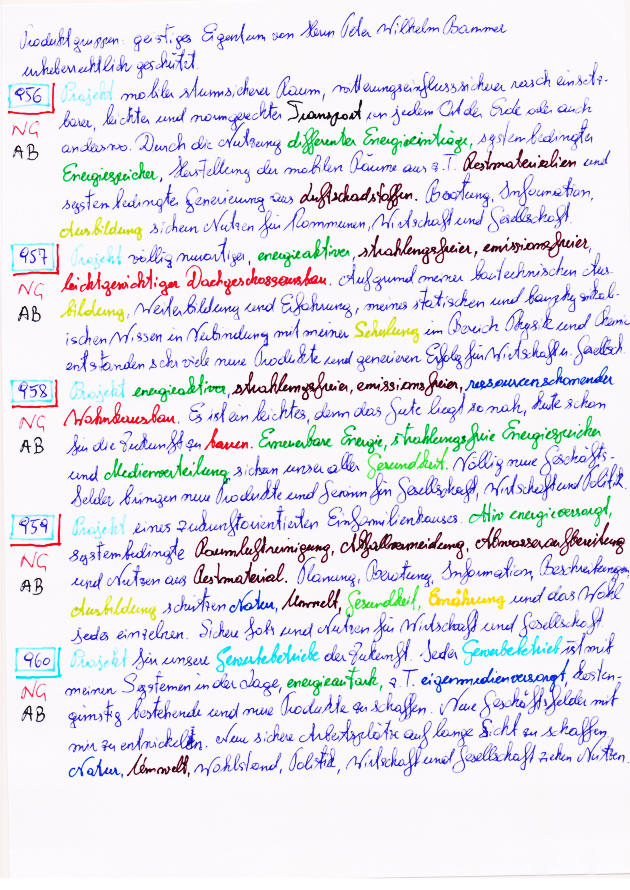 Produktgruppen: geistiges Eigentum von Herrn Peter Wilhelm Bammer
urheberrechtlich geschützt.
956 Projekt mobiler sturmsicherer Raum, witterungseinflusssicherer rasch einsetz-
NG barer, leichter und normgerechter Transport an jedem Ort der Erde oder auch
AB anderswo. Durch die Nutzung differenter Energieeinträge, systembedingter
Energiespeicher, Herstellung der mobilen Räume aus z.T. Restmaterialien und
systembedingte Generierung aus Luftschadstoffen. Beratung, Information,
Ausbildung sichern Nutzen für Kommunen, Wirtschaft und Gesellschaft.
957 Projekt völlig neuartiger, energieaktiver, strahlungsfreier, emissionsfreier,
NG leichtgewichtiger Dachgeschossausbau. Aufgrund meiner bautechnischen Aus-
AB bildung, Weiterbildung und Erfahrung, meines statischen und bauphysikal-
ischen Wissen in Verbindung mit meiner Schulung im Bereich Physik und Chemie
entstanden sehr viele neue Produkte und generieren Erfolg für Wirtschaft u. Gesellsch.
958 Projekt energieaktiver, strahlungsfreier, emissionsfreier, ressourcenschonender
NG Wohnhausbau. Es ist ein leichtes, denn das Gute liegt so nah, heute schon
AB für die Zukunft zu bauen. Erneuerbare Energie, strahlungsfreie Energiespeicher
und Medienverteilung sichern unser aller Gesundheit. Völlig neue Geschäfts-
felder bringen neue Produkte und Gewinn für Gesellschaft, Wirtschaft und Politik.
959 Projekt eines zukunftsorientierten Einfamilienhauses. Aktiv energieversorgt,
NG systembedingte Raumluftreinigung, Abfallvermeidung, Abwasseraufbereitung
AB und Nutzen aus Restmaterial. Planung, Beratung, Information, Beschreibungen,
Ausbildung schützen Natur, Umwelt, Gesundheit, Ernährung und das Wohl
jedes einzelnen. Sichere Jobs und Nutzen für Wirtschaft und Gesellschaft
960 Projekt für unsere Gewerbebetriebe der Zukunft. Jeder Gewerbebetrieb ist mit
NG meinen Systemen in der Lage, energieautark, z.T. eigenmedienversorgt, kosten-
AB günstig bestehende und neue Produkte zu schaffen. Neue Geschäftsfelder mit
mir zu entwickeln. Neue sichere Arbeitsplätze auf lange Sicht zu schaffen.
Natur, Umwelt, Wohlstand, Politik, Wirtschaft und Gesellschaft ziehen Nutzen.